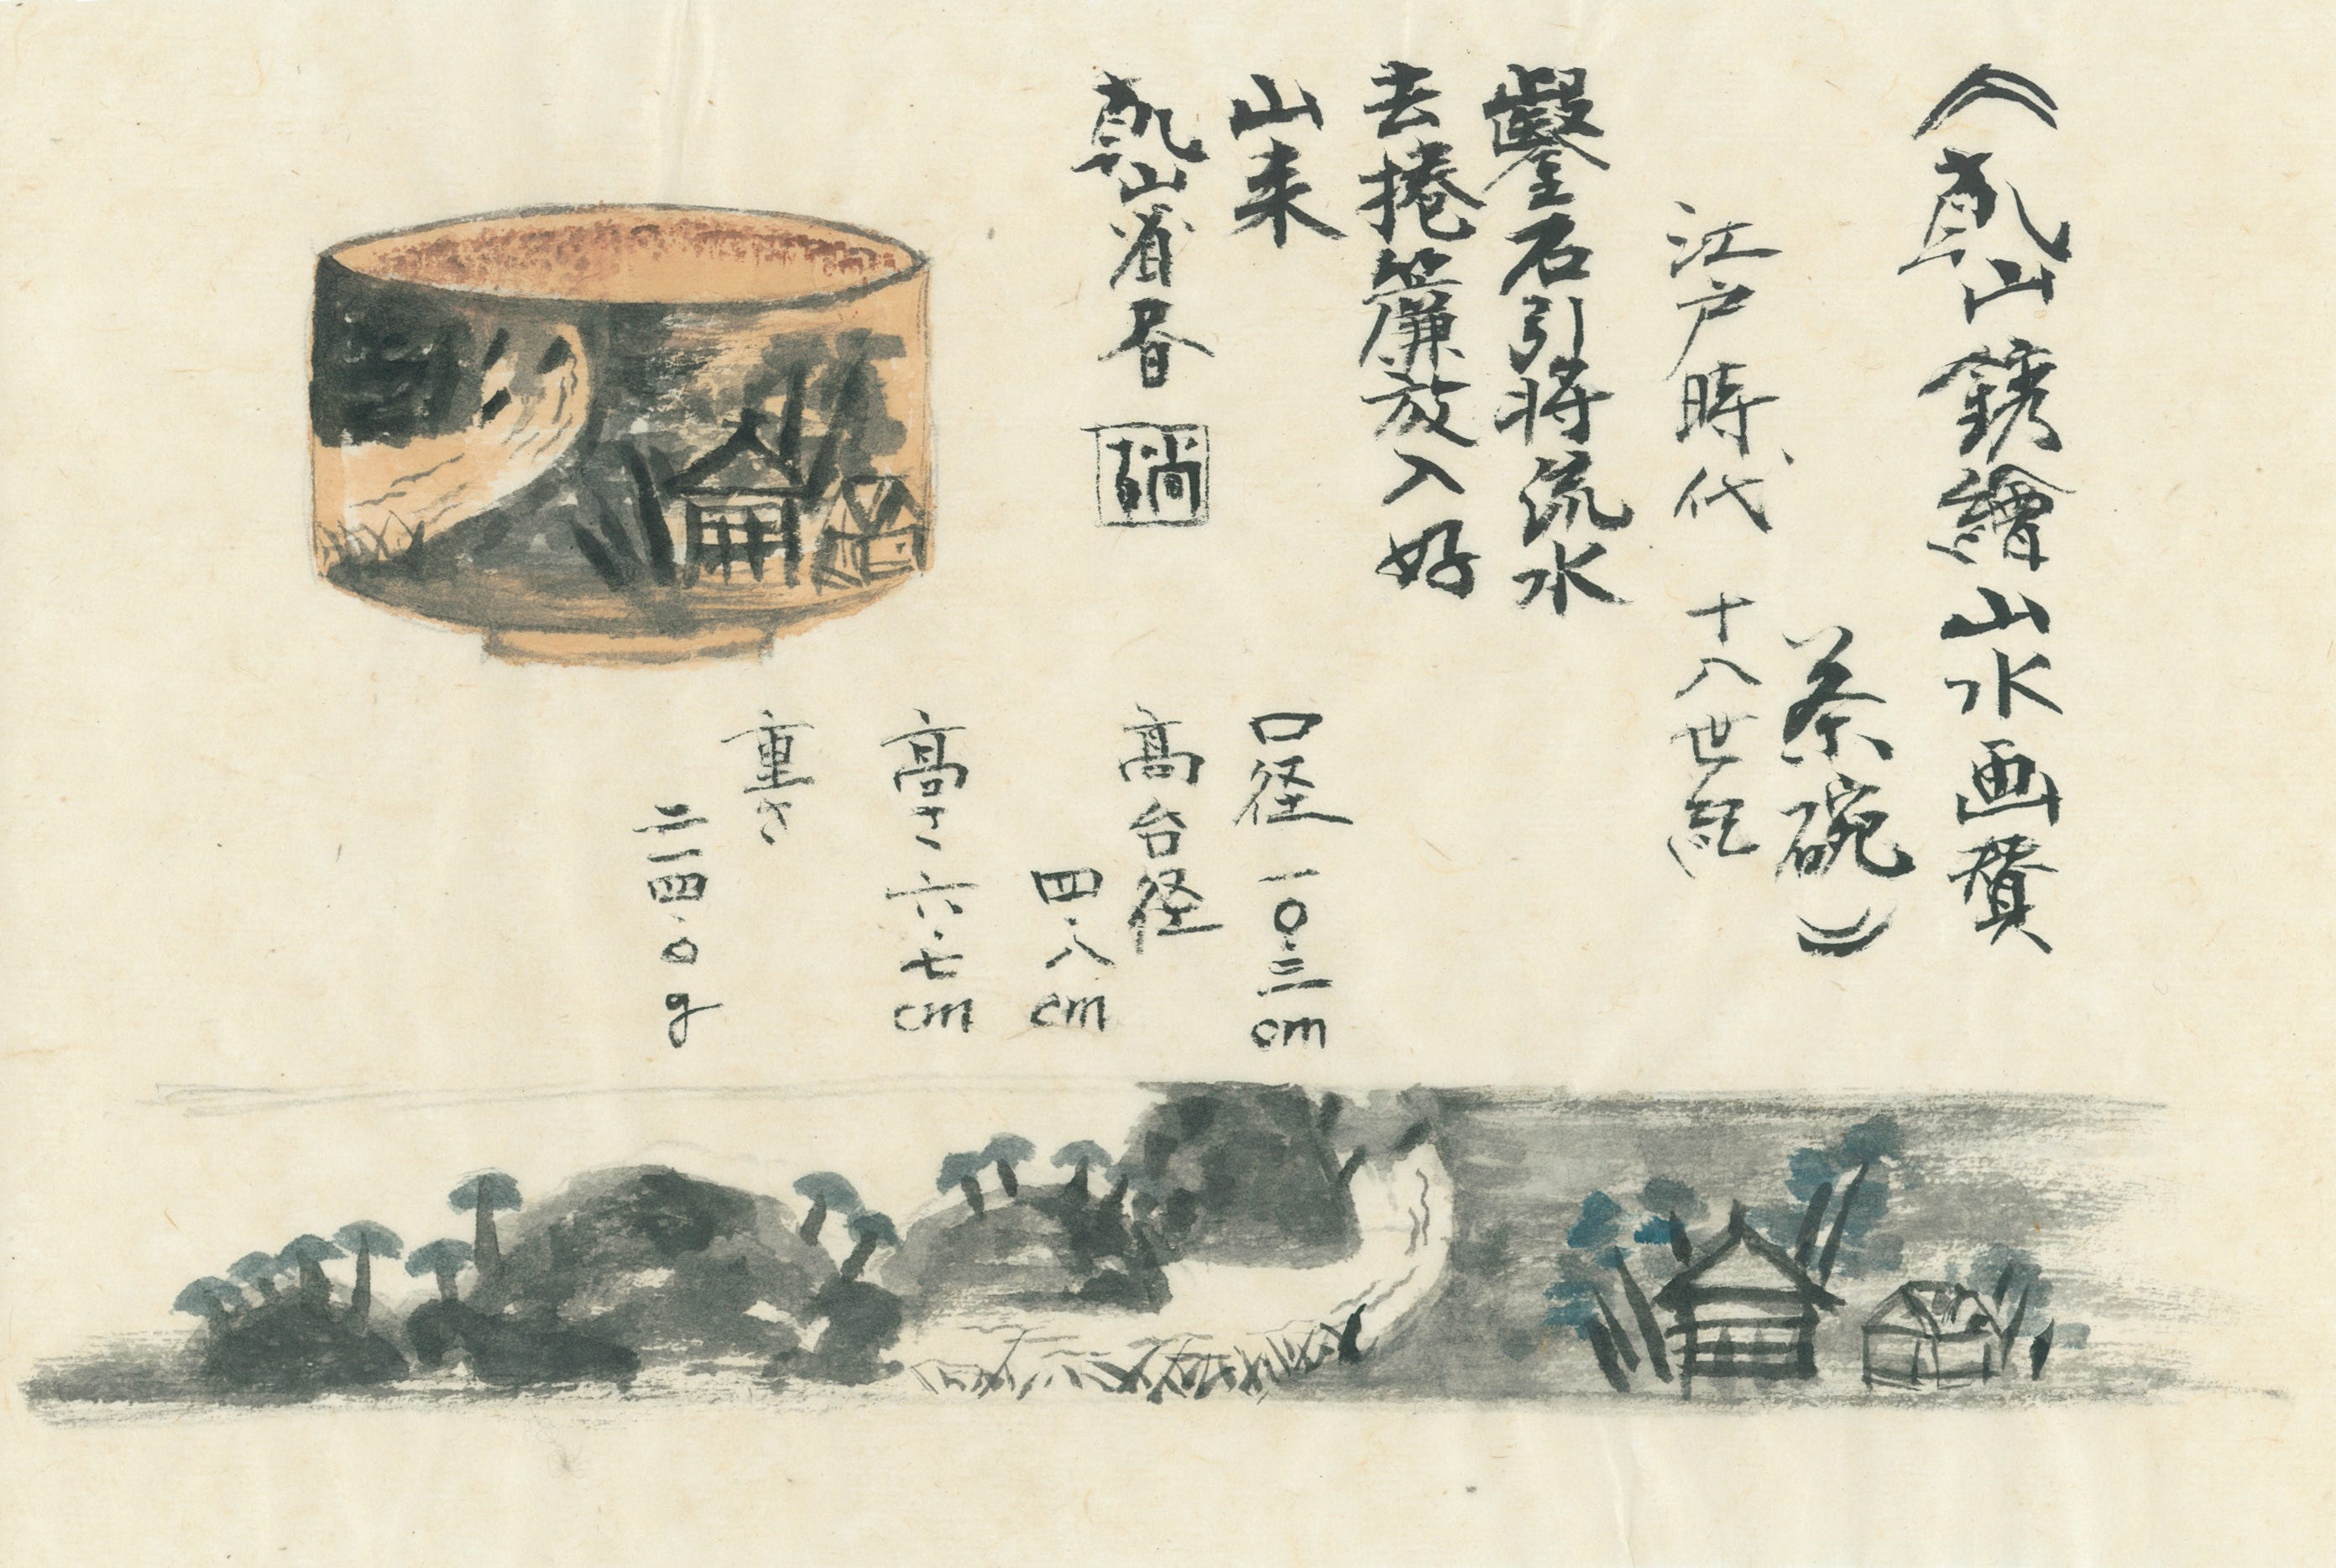 《乾山銹繪山水画賛
茶碗》
江戸時代 十八世紀
鑿石引将流水
去捲簾放入好
山来
乾山省書
口径 一〇・三cm
高台径
四・八cm
高さ 六・七cm
重さ
二一四・〇g